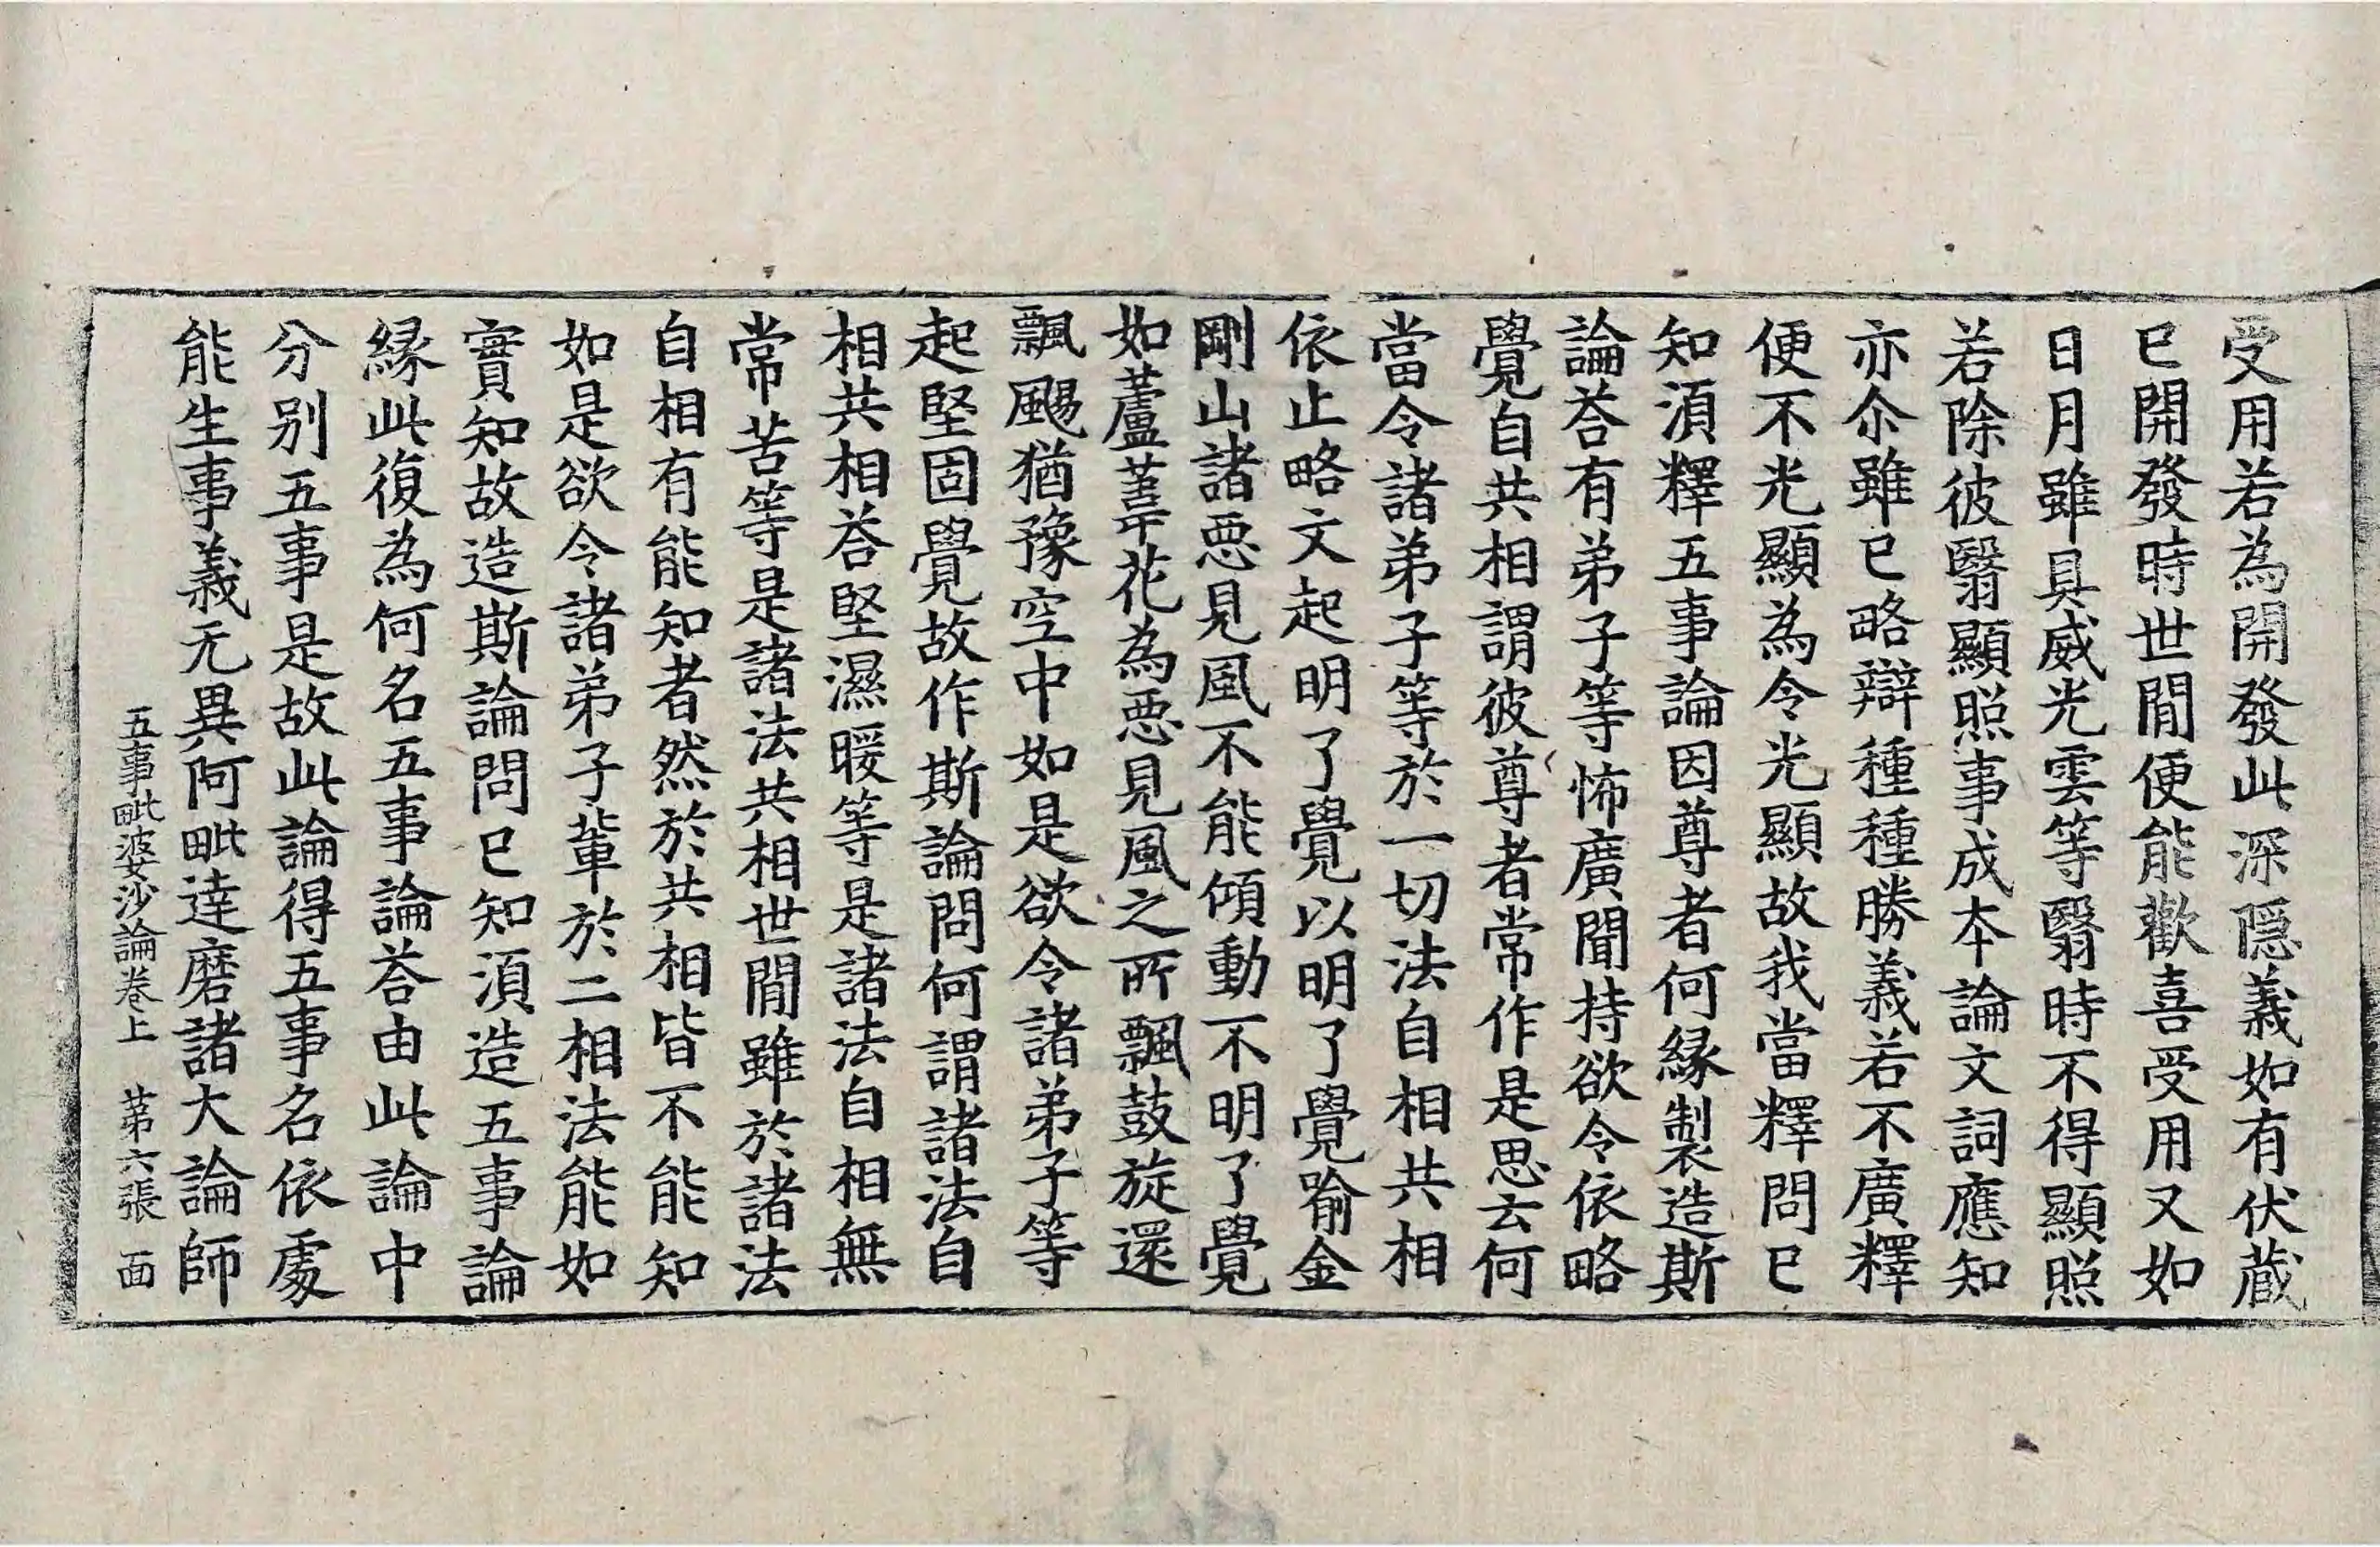 受用若為開發此深隱義如有伏蔵
已開發時世閒便能歡喜受用又如
日月雖具威光雲等翳時不得顯照
若除彼翳顯照事成本論文詞應知
亦尒雖已略辯種種勝義若不廣釋
便不光顯為令光顯故我當釋問已
知湏釋五事論因尊者何縁製造斯
論荅有弟子等怖廣聞持欲令依略
覺自共相謂彼尊者常作是思云何
當令諸弟子等於一切法自相共相
依止略文起明了覺以明了覺喻金
剛山諸惡見風不能傾動不明了覺
如蘆葦花為惡見風之所飄鼓旋還
飄颺猶豫空中如是欲令諸弟子等
起堅固覺故作斯論問何謂諸法自
相共相荅堅濕暖等是諸法自相無
常苦等是諸法共相世閒雖於諸法
自相有能知者然於共相皆不能知
如是欲令諸弟子輩於二相法能如
實知故造斯論問已知湏造五事論
縁此復為何名五事論荅由此論中
分别五事是故此論得五事名依處
能生事義无異阿毗達磨諸大論師
五事毗婆沙論卷上　第六張　面